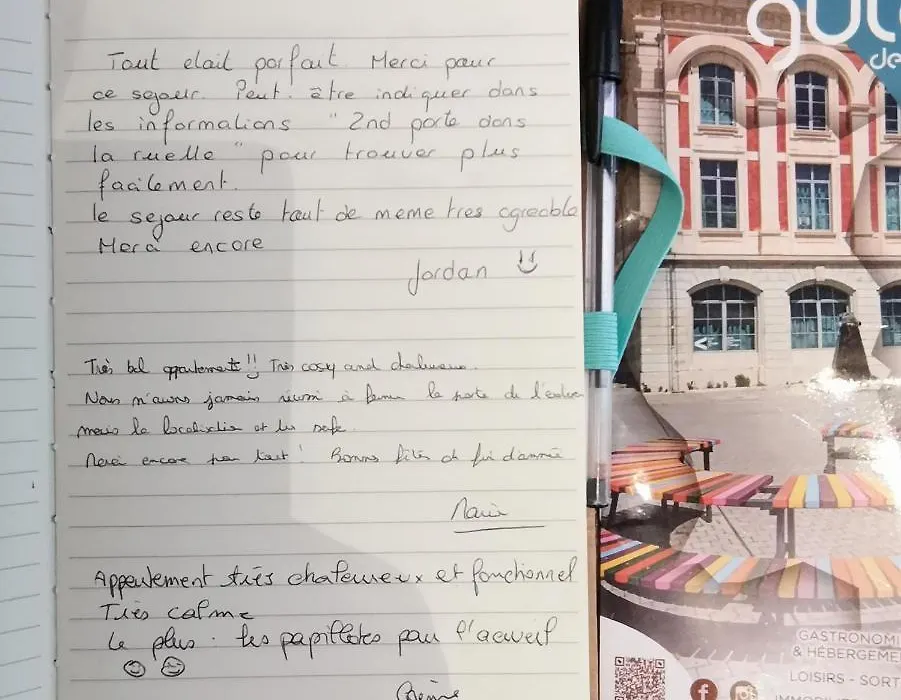 Tout etait parfait. Merci pour
ce sejour. Peut. être indiquer dans
les informations "2nd porte dans
la ruelle" pour trouver plus
facilement.
le sejour reste tout de meme tres agreable
Merci encore
Jordan
Très bel appartements!! Très cosy and chaleureux.
Nous n'avons jamais réussi à fermer la porte de l'
mais la localisation et très safe.
Merci encore pour tout! Bonnes fêtes de fin d'année
Marie
Appartement très chaleureux et fonctionnel
Très calme
Le plus : les papillotes pour l'accueil
de
GASTRONOMI
& HÉBERGEME
LOISIRS - SORT